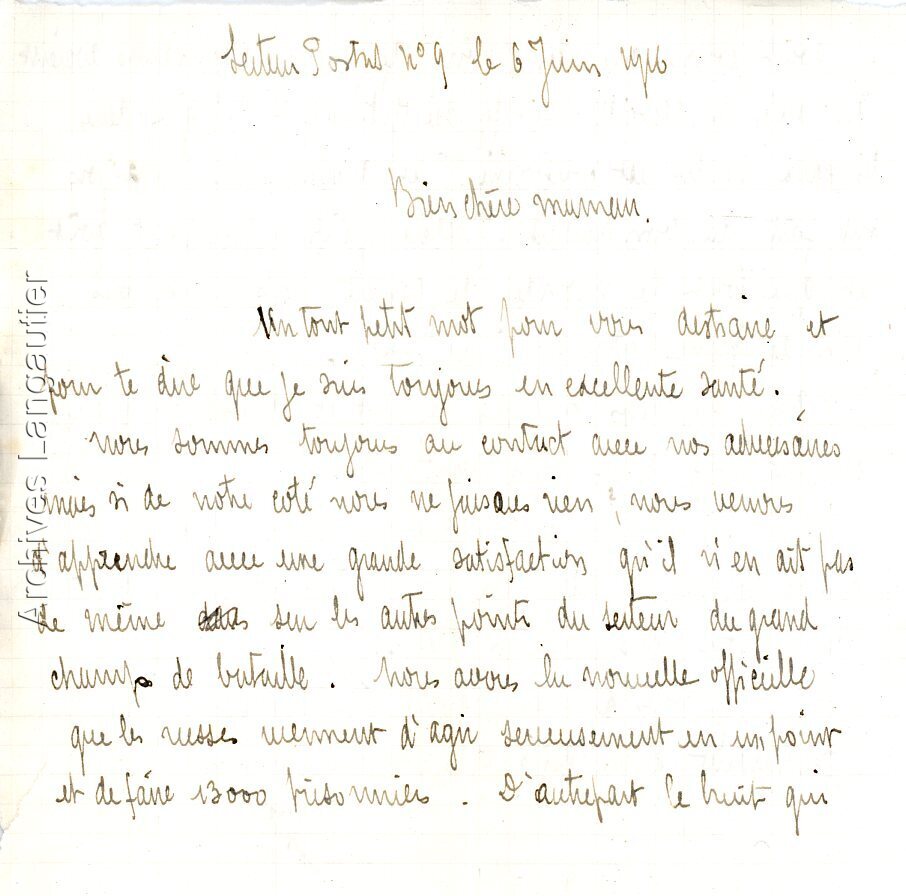 Secteur Postal n° 9 le 6 Juin 1916
Bien chère maman.
Un tout petit mot pour vous distraire et
pour te dire que je suis toujours en excellente santé.
nous sommes toujours au contact avec nos adversaires
mais si de notre coté nous ne faisons rien, nous venons
d'apprendre avec une grande satisfaction qu'il n'en ait pas
de même sur les autres points du secteur du grand
champ de bataille. Nous avons la nouvelle officielle
que les russes viennent d'agir serieusement en un point
et de faire 13000 prisonniers. D'autrepart le bruit qui
Archives Langautier